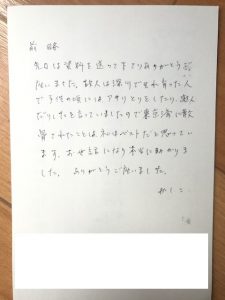 前略
先日は資料を送って下さりありがとうござ
いました。故人は深川で生れ育った人
で子供の頃にはアサリとりをしたり、
だりしたと言っていましたので東京湾に散
骨されたことはベストだと思ってい
ます。お世話になり本当に助かりま
した。ありがとうございました。
かしこ